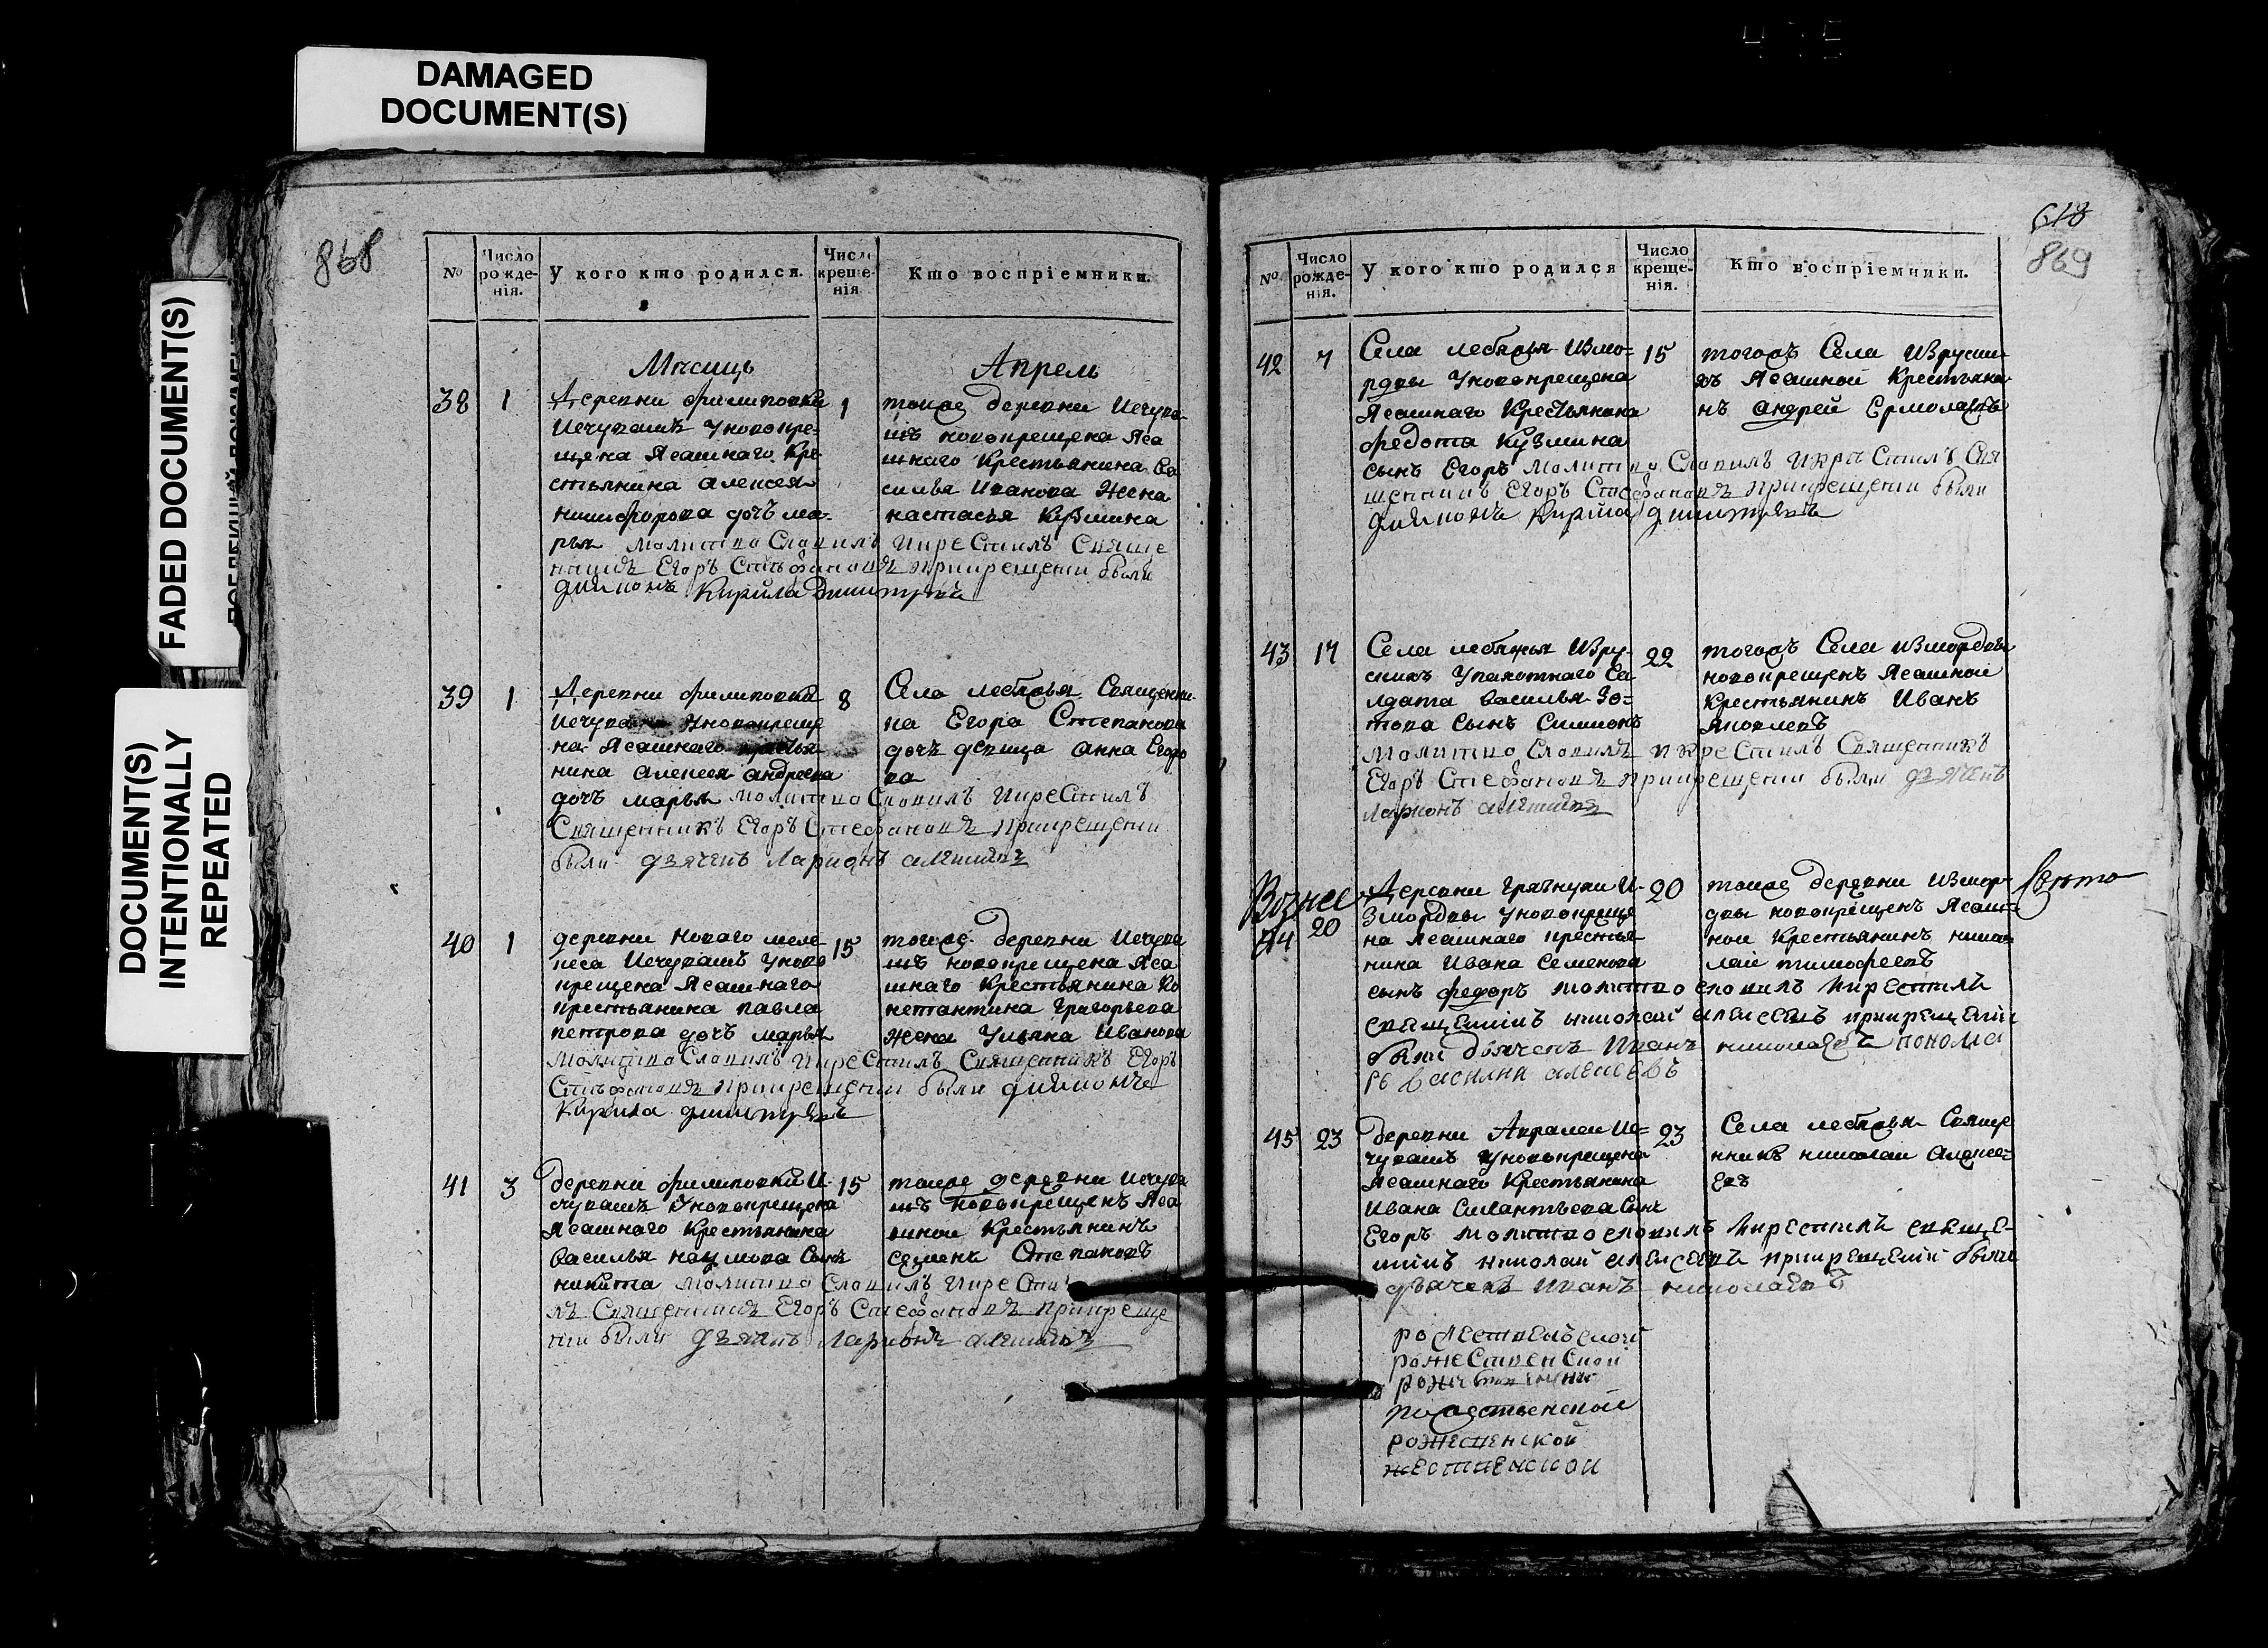 DAMAGED
DOCUMENT(S)
FADED DOCUMENT(S)
DOCUMENT(S)
INTENTIONALLY
REPEATED
868
№
Число рожденія.
У кого кто родился.
Число крещенія
Кто воспріемники.
Мѣсицъ Апрель
38 1 1
Деревни Филиповки
Исчувашъ Уновокре-
щена Ясашнаго Кре
стьянина Алексея
никифорова дочъ ма-
рья молитво Словилъ Икре Стилъ Свяще
нникъ Егоръ Стефановъ прикрещении были
дияконъ Кирила Дмитрѣвъ
тоиже деревни Исчува-
шъ новокрещена Яса
шнаго Крестьянина Ва
силья Иванова Жена
настасья Кузмина
39 1 8
Деревни Филиповки
Исчувашъ Уновокреще
на Ясашнаго крестья
нина Алексея андреева
дочъ марья молитво Словилъ Икре Стилъ
Священникъ Егоръ Стефановъ прикрещении
были дзячекъ Ларионъ
Села лебяжья Священни-
ка Егора Степанова
дочъ девица анна Егоро
ва
40 1 15
деревни Новаго меле-
кеса Исчувашъ Уново
крещена Ясашнаго
крестьянина павла
петрова дочъ марья
молитво Словилъ Икре Стилъ Священникъ Егоръ
Стефановъ прикрещении были дияконъ
Кирила дмитрѣвъ
тоиже деревни Исчува
шъ новокрещена Яса
шнаго Крестьянина Ко
нстантина Григорьева
Жена Ульяна Иванова
41 3 15
деревни филиповки И-
счувашъ Уновокрещена
Ясашнаго Крестьянина
василья наумова Сынъ
никита молитво Словилъ Икре Сти
лъ Священникъ Егоръ Стефановъ прикреще
нии были дзячекъ Ларионъ
тоиже деревни Исчува
шъ новокрещенъ Яса
шнои Крестьянинъ
семенъ Степановъ
618
869
№
Число рожденія.
У кого кто родился
Число крещенія.
Кто воспріемники.
42 7 15
Села лебяжья Измо-
рдвы Уновокрещена
Ясашнаго Крестьянина
федота Кузмина
сынъ Егоръ молитво Словилъ Икре Стилъ Свя
щенникъ Егоръ Стефановъ прикрещении были
дияконъ Кирила дмитрѣвъ
тогожъ Села Изруски-
хъ Ясашной Крестьяни-
нъ андрей Ермолаевъ
43 17 22
Села лебяжья Изру-
скихъ Са
лдата василья Зо-
това сынъ Симионъ
молитво Словилъ Икре Стилъ Священникъ
Егоръ Стефановъ прикрещении были дзячекъ
Ларионъ
тогожъ Села Измордвы
новокрещенъ Ясашной
Крестьянинъ Иванъ
яковлевъ
Вознесе
44 20 20
Деревни грязнухи И-
змордвы Уновокреще
на Ясашнаго крестья
нина Ивана Семенова
сынъ федоръ молитво словилъ Икрестилъ
священникъ николай алексеевъ прикрещении
были дьячекъ Иванъ николаевъ понома
рь василии алексеевъ
тоиже деревни Измор-
двы новокрещенъ Ясаш-
нои Крестьянинъ нико-
лаи тимофеевъ
45 23 23
деревни Авралеи Ис-
чувашъ Уновокрещена
Ясашнаго Крестьянина
Ивана Силантьева Сынъ
Егоръ молитво словилъ Икрестилъ свяще-
нникъ николай алексеевъ прикрещении были
дьячекъ Иванъ николаевъ
Села лебяжья Свяще
нникъ николаи Алексе-
евъ
рожественской
рожественской
рожественской
рожещенской
жественской